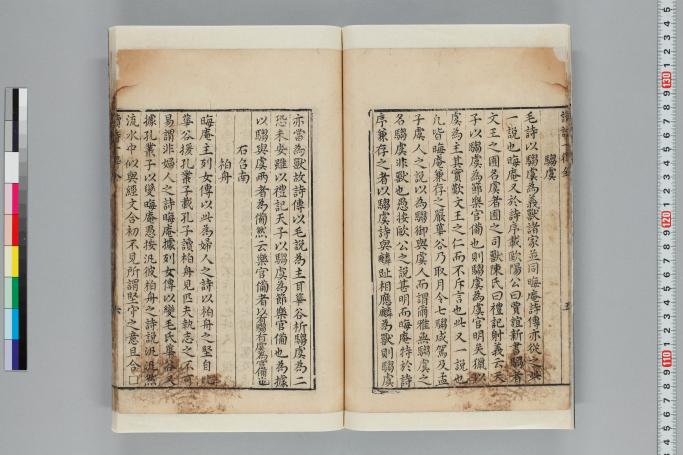 騶虞
毛詩以騶虞為義獸諸家並同晦庵詩傳亦從之與
一說也晦庵又於詩序載歐陽公曰賈誼新書騶者
文王之囿名虞者囿之司獸陳氏曰禮記射義云天
子以騶虞為節樂官備也則騶虞為虞官明矣獵以
虞為主其實歎文王之仁而不斥言也此又一說也
凡皆晦庵兼存之嚴華谷乃取月令七騶咸駕及孟
子虞人之說以為騶御與虞人而謂爾雅無騶虞之
名騶虞非獸也愚按歐公之說甚明而晦庵特於詩
序兼存之者以騶虞詩與麟趾相應麟為獸則騶虞
亦當為獸故詩傳以毛說為主耳華谷析騶虞為二
恐未安雖以禮記天子以騶虞為節樂官備也為據
以騶與虞兩者為備然云樂官備者以有騶有虞為官備也
右召南
柏舟
晦庵主列女傳以此為婦人之詩以柏舟之堅自比
華谷援孔叢子載孔子讀柏舟見匹夫執志之不可
易謂非婦人之詩晦庵據列女傳以變毛氏華谷又
據孔叢子以變晦庵愚按汎彼柏舟之詩說汎汎然
流水中似與經文合初不見所謂堅守之意且合